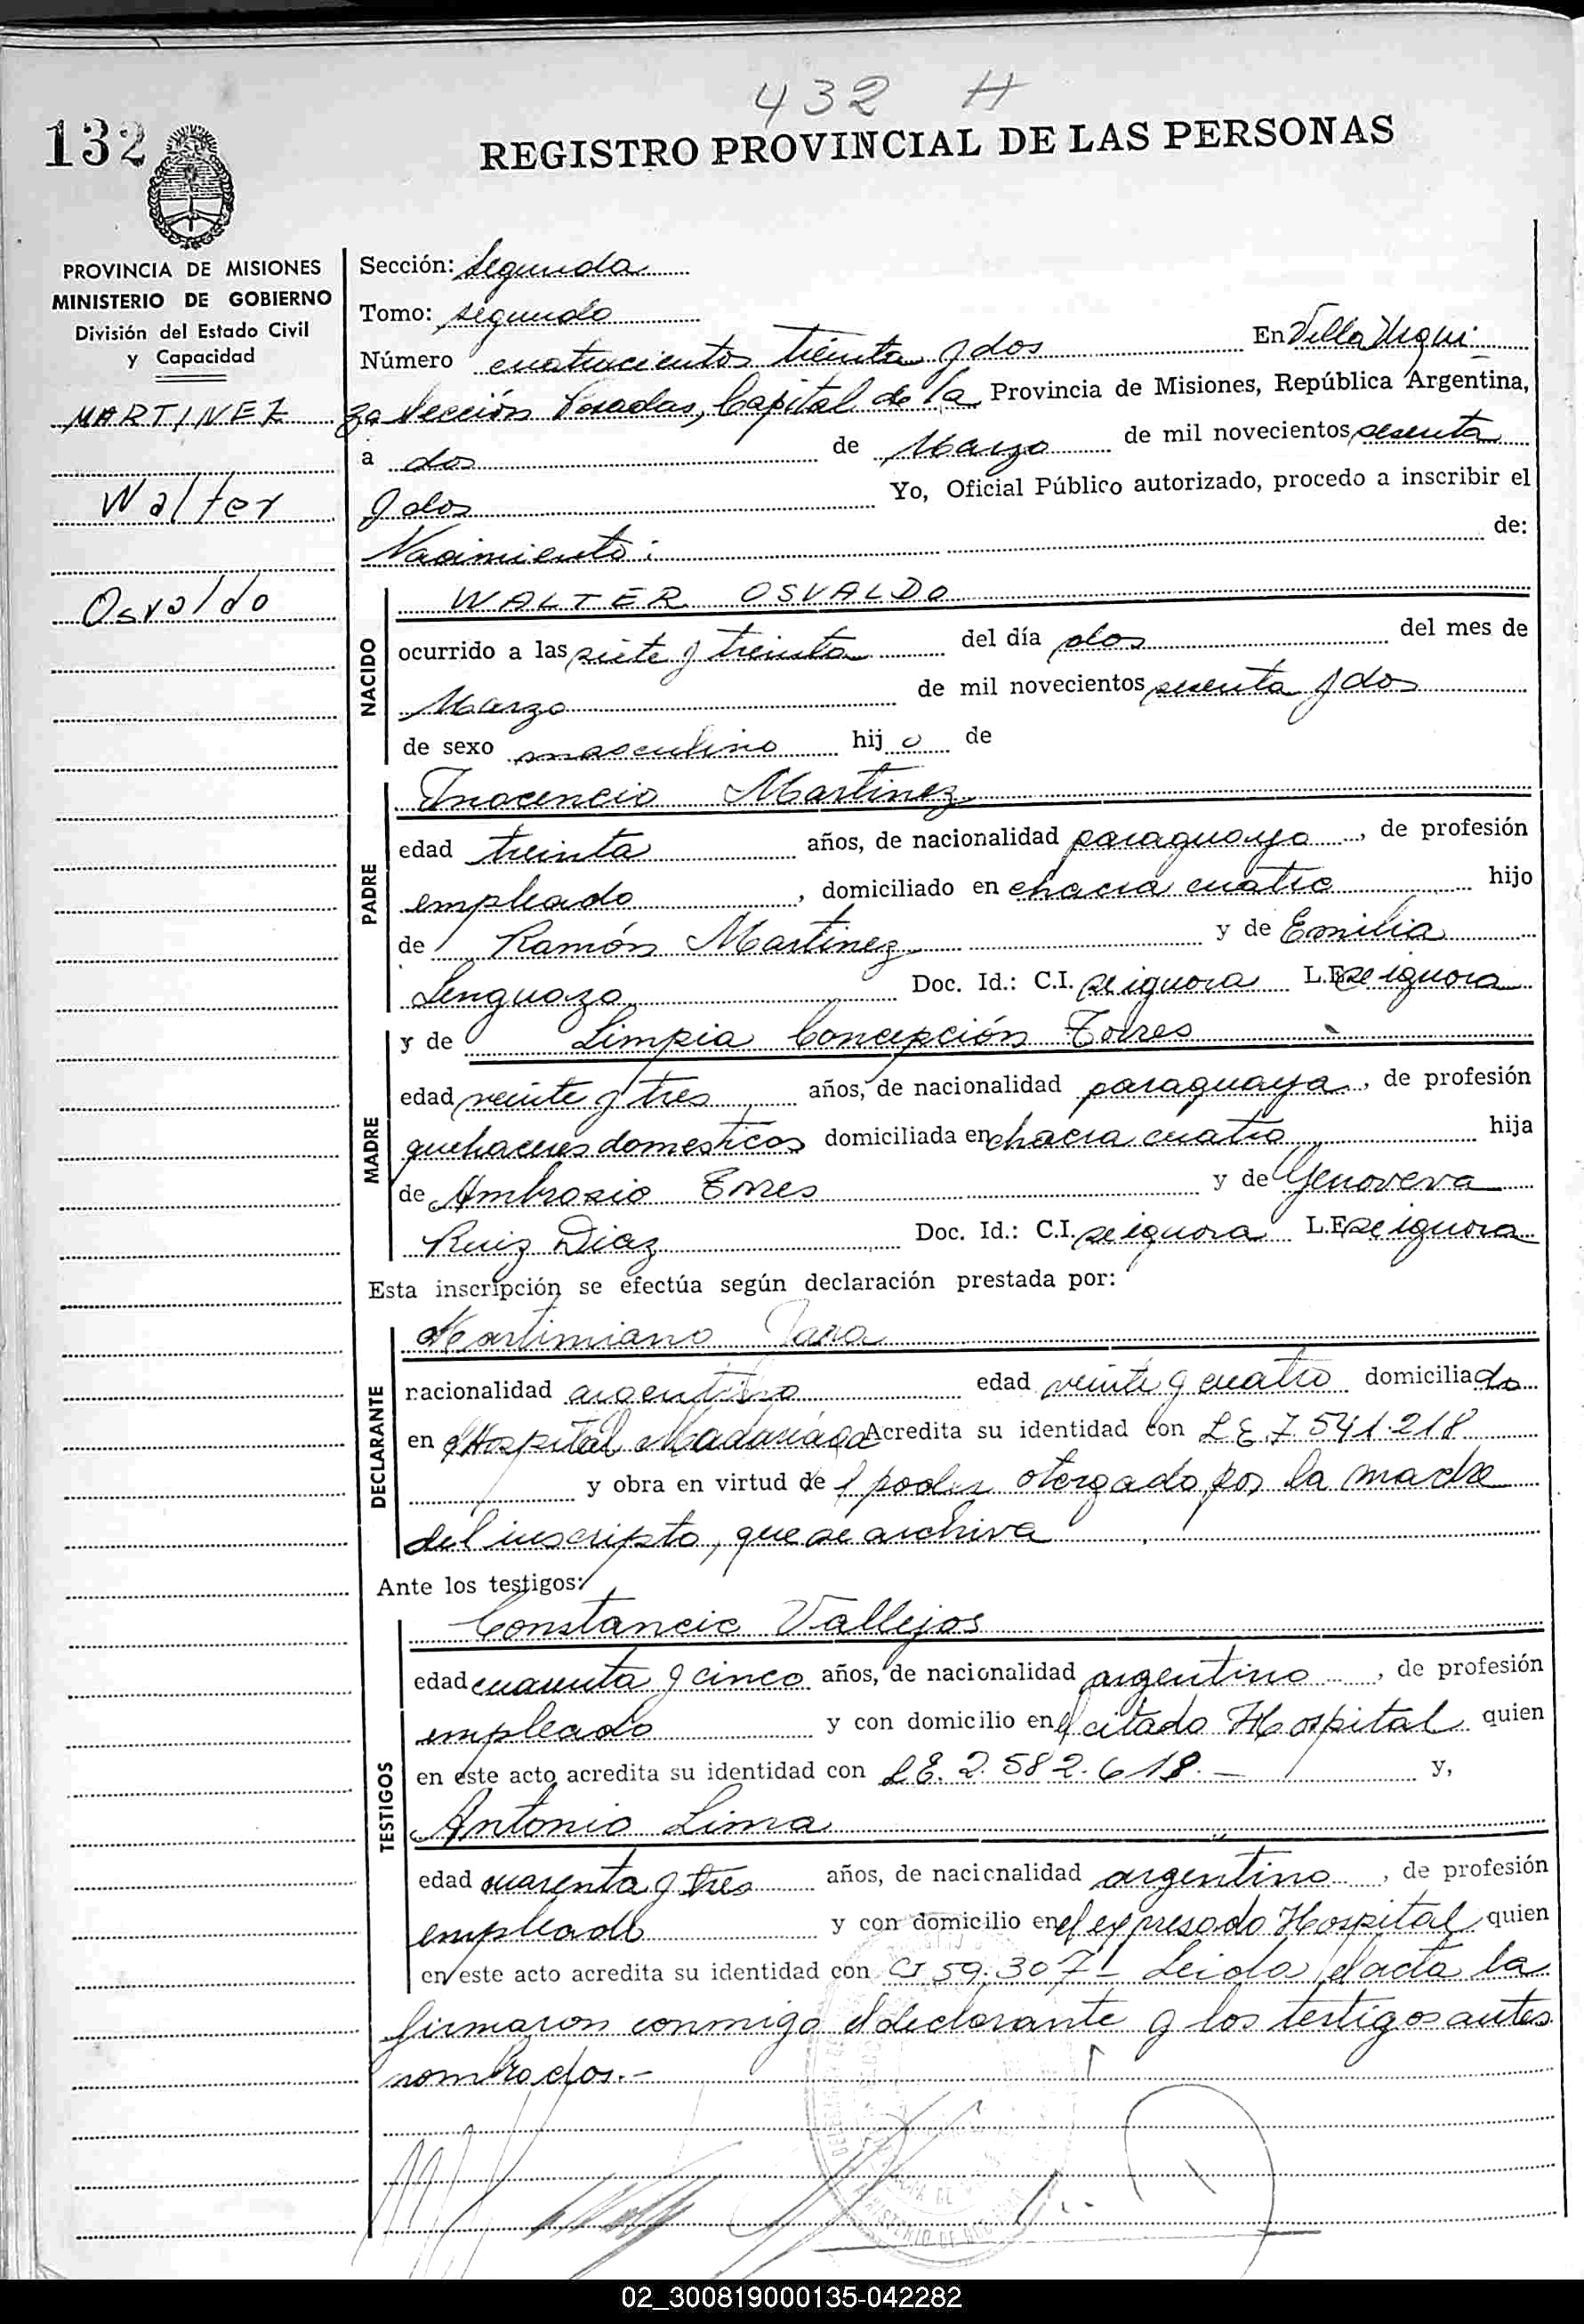 432 H
132
REGISTRO PROVINCIAL DE LAS PERSONAS
PROVINCIA DE MISIONES
MINISTERIO DE GOBIERNO
División del Estado Civil
y Capacidad
MARTINEZ
Walter
Osvaldo
Sección: Segunda
Tomo: segundo
Número cuatrocientos treinta y dos En Villa Urqui-
za Sección Posadas, Capital de la Provincia de Misiones, República Argentina,
a dos de Marzo de mil novecientos sesenta
y dos Yo, Oficial Público autorizado, procedo a inscribir el
Nacimiento: de:
NACIDO
WALTER OSVALDO
ocurrido a las siete y treinta del día dos del mes de
Marzo de mil novecientos sesenta y dos
de sexo masculino hijo de
PADRE
Inocencio Martinez
edad treinta años, de nacionalidad paraguaya, de profesión
empleado, domiciliado en chacra cuatro hijo
de Ramón Martinez y de Emilia
Lenguaza Doc. Id.: C.I. se ignora L.E. se ignora
y de Limpia Concepción Torres
MADRE
edad veinte y tres años, de nacionalidad paraguaya, de profesión
quehaceres domesticos domiciliada en chacra cuatro hija
de Ambrosio Torres y de Genoveva
Ruiz Diaz Doc. Id.: C.I. se ignora L.E. se ignora
Esta inscripción se efectúa según declaración prestada por:
DECLARANTE
Martimiano Jara
nacionalidad argentino edad veinte y cuatro domiciliado
en Hospital Madariaga Acredita su identidad con L E 7 541.218
y obra en virtud de poder otorgado por la madre
del inscripto, que se archiva
Ante los testigos:
TESTIGOS
Constancio Vallejos
edad cuarenta y cinco años, de nacionalidad argentino, de profesión
empleado y con domicilio en el citado Hospital quien
en este acto acredita su identidad con L E. 2.582.618.— y,
Antonio Lima
edad cuarenta y tres años, de nacionalidad argentino, de profesión
empleado y con domicilio en el expresado Hospital quien
en este acto acredita su identidad con CI 59.307- Leida el acta la
firmaron conmigo el declarante y los testigos antes
nombrados.-
02_300819000135-042282